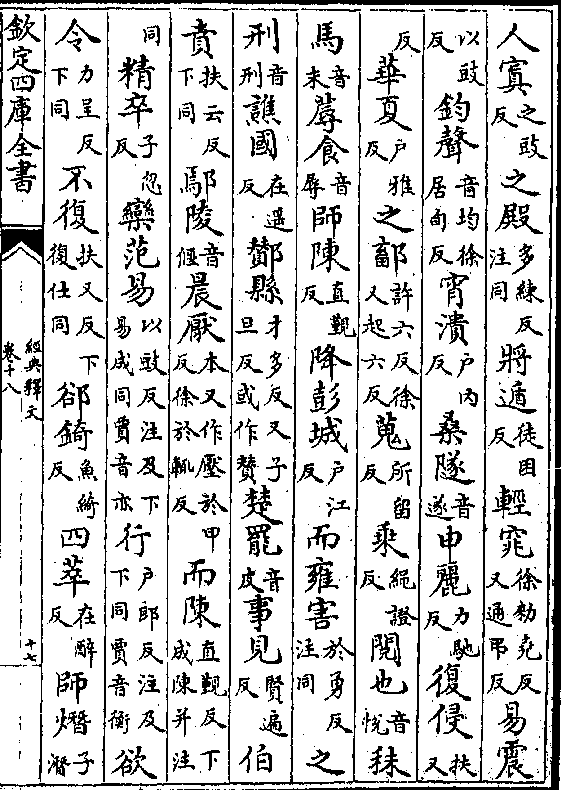 人寘之豉反之殿多練反注同將遁徒困反輕窕徐勑堯反又通弔反易震
以豉反鈞聲音均徐居旬反宵潰戶内反桑隧音遂申麗力馳反復侵扶又
反華夏戶雅反之鄐許六反徐又起六反蒐所留反乘繩證反閱也音悅秣
馬音末蓐食音辱師陳直覲反降彭城戶江反而雍害於勇反注同之
刑音刑譙國在遥反酇縣才多反又子旦反或作贊楚罷音皮事見賢遍反伯
賁扶云反下同鄢陵音偃晨厭本又作壓於甲反徐於輒反而陳直覲反下成陳并注
同精卒子忽反欒范易以豉反注及下易成同賈音亦行戶郎反注及下同賈音衡欲
令力呈反下同不復扶又反下復仕同郤錡魚綺反四萃在醉反師熸子潛
欽定四庫全書
經典釋文
卷十八
十七